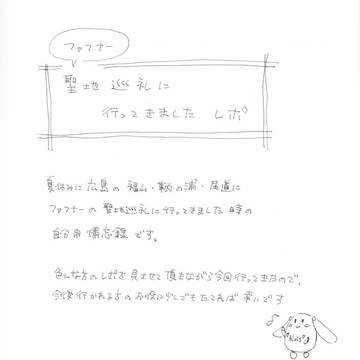 ファフナー
聖地巡礼に
行ってきました レポ
夏休みに広島の福山・鞆の浦・尾道に
ファフナーの聖地巡礼に行ってきました時の
自分用備忘録です。
色んな方のレポを見させて頂きながら今回行ってきたので、
今後行かれる方のお役に少しでもたてれば幸いです